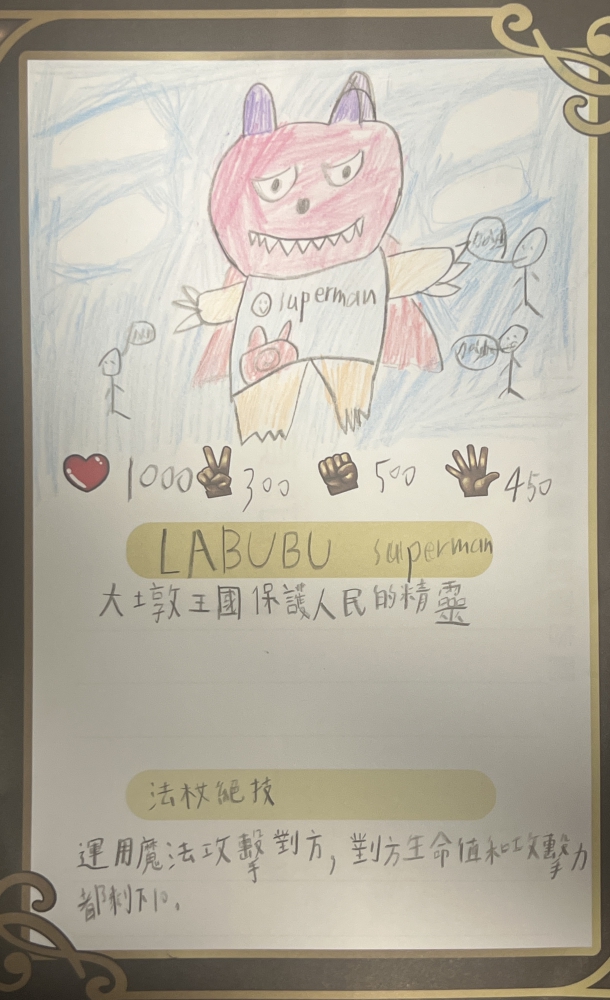 superman
1000 300 500 450
LABUBU superman
大墩王國保護人民的精靈
法杖絕技
運用魔法攻擊對方，對方生命值和攻擊力
都剩下10.